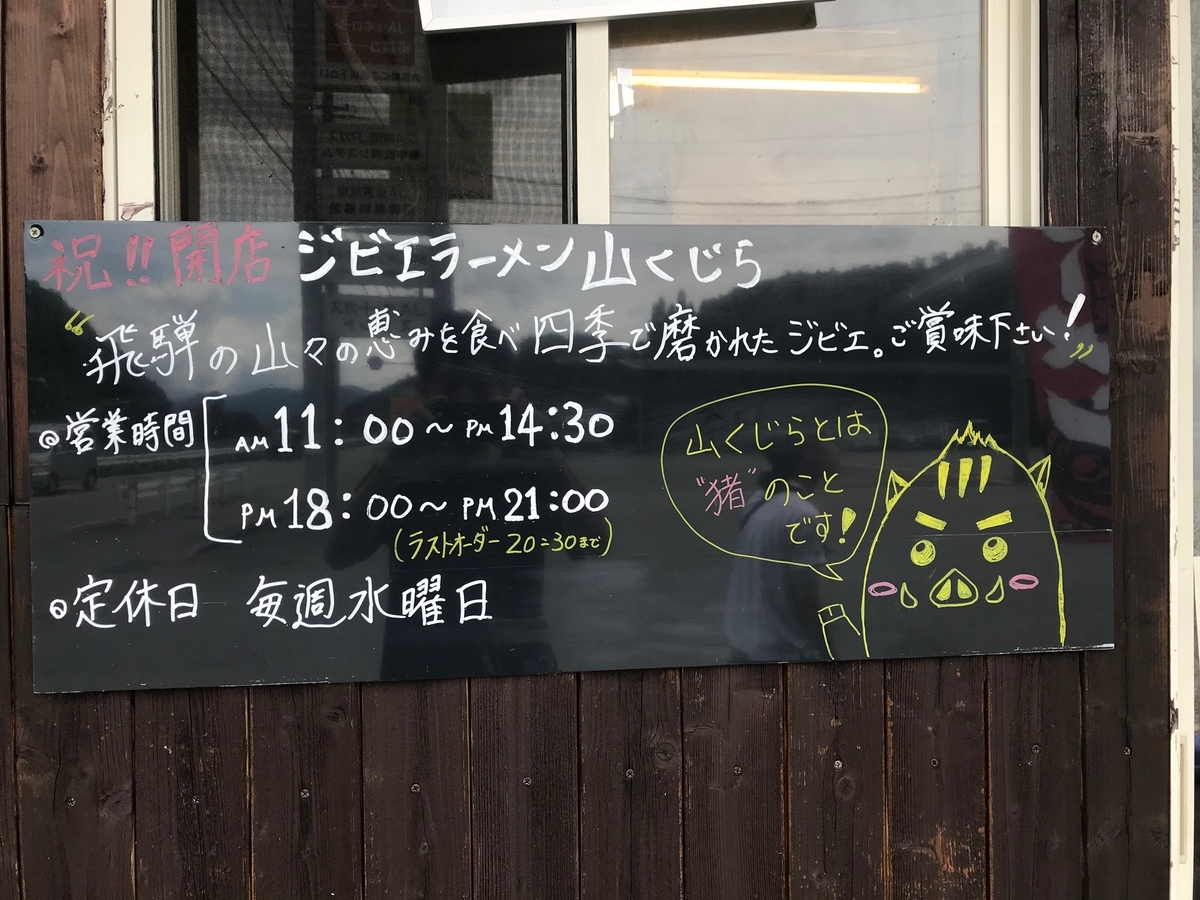 祝!!開店 ジビエラーメン 山くじら
“飛騨の山々の恵みを食べ四季で磨かれたジビエ。ご賞味下さい!”
◎営業時間
AM 11:00～PM 14:30
PM 18:00～PM 21:00
(ラストオーダー 20:30まで)
◎定休日 毎週水曜日
山くじらとは
“猪”のこと
です!